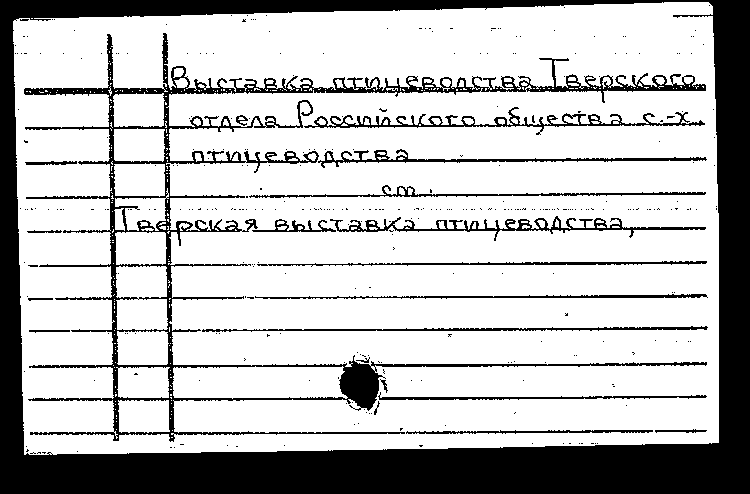 Выставка птицеводства Тверского
отдела Российского общества с.-х.
птицеводства
см.
Тверская выставка птицеводства,